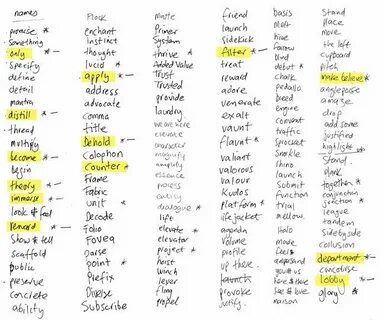 names
promise *
something
only * —
specify
define
detail
mantra
distill * —
thread
multiply
become * —
begin
theory * —
immerse * —
look & feel
remand * —
show & tell
scaffold
public
preserve
concrete
ability
Flock
enchant
instinct
thought
lucid *
apply * —
address
advocate
comma
title
behold * —
colophon
counter *
frame
fabric
unit *
Decode
folio
Fovea
parse
point *
Prefix
Diverse
Subscribe
mute
Primer
System
thrive *
Added Value
Trust
Trusted
provide
laundry
weave here
elevate
character
magnify
amplify
essence
possess
entity
dialogue *
lift
elevate *
elevator
project *
hoist
winch
lever
fling
propel
friend
launch
sidekick
filter * —
treat
reward
adore
venerate
exalt
vaunt
flair
valiant
valorous
valour
kudos
platform *
lifejacket
agenda
volume
profile
up there.
launch
provoke
justify.
basis
moft
hive
farrow
blind
debut *
chalk
pedalo
breed
engine
convent
traffic
Sprocket
Snorkle
rhino
launch
Submit
function
trial
mellow.
Halo
mode
feels
ampersand
you & us
here & there
live & love
maison
Stand
place
more
the loft
cupboard
pitch
make believe * —
anglepoise
amaze
drop
add some
justified
highlight *
Stand.
plank
together *
conjunction
junction *
league
tandem
Side by side
collusion
department * —
concourse
lobby * —
glory *